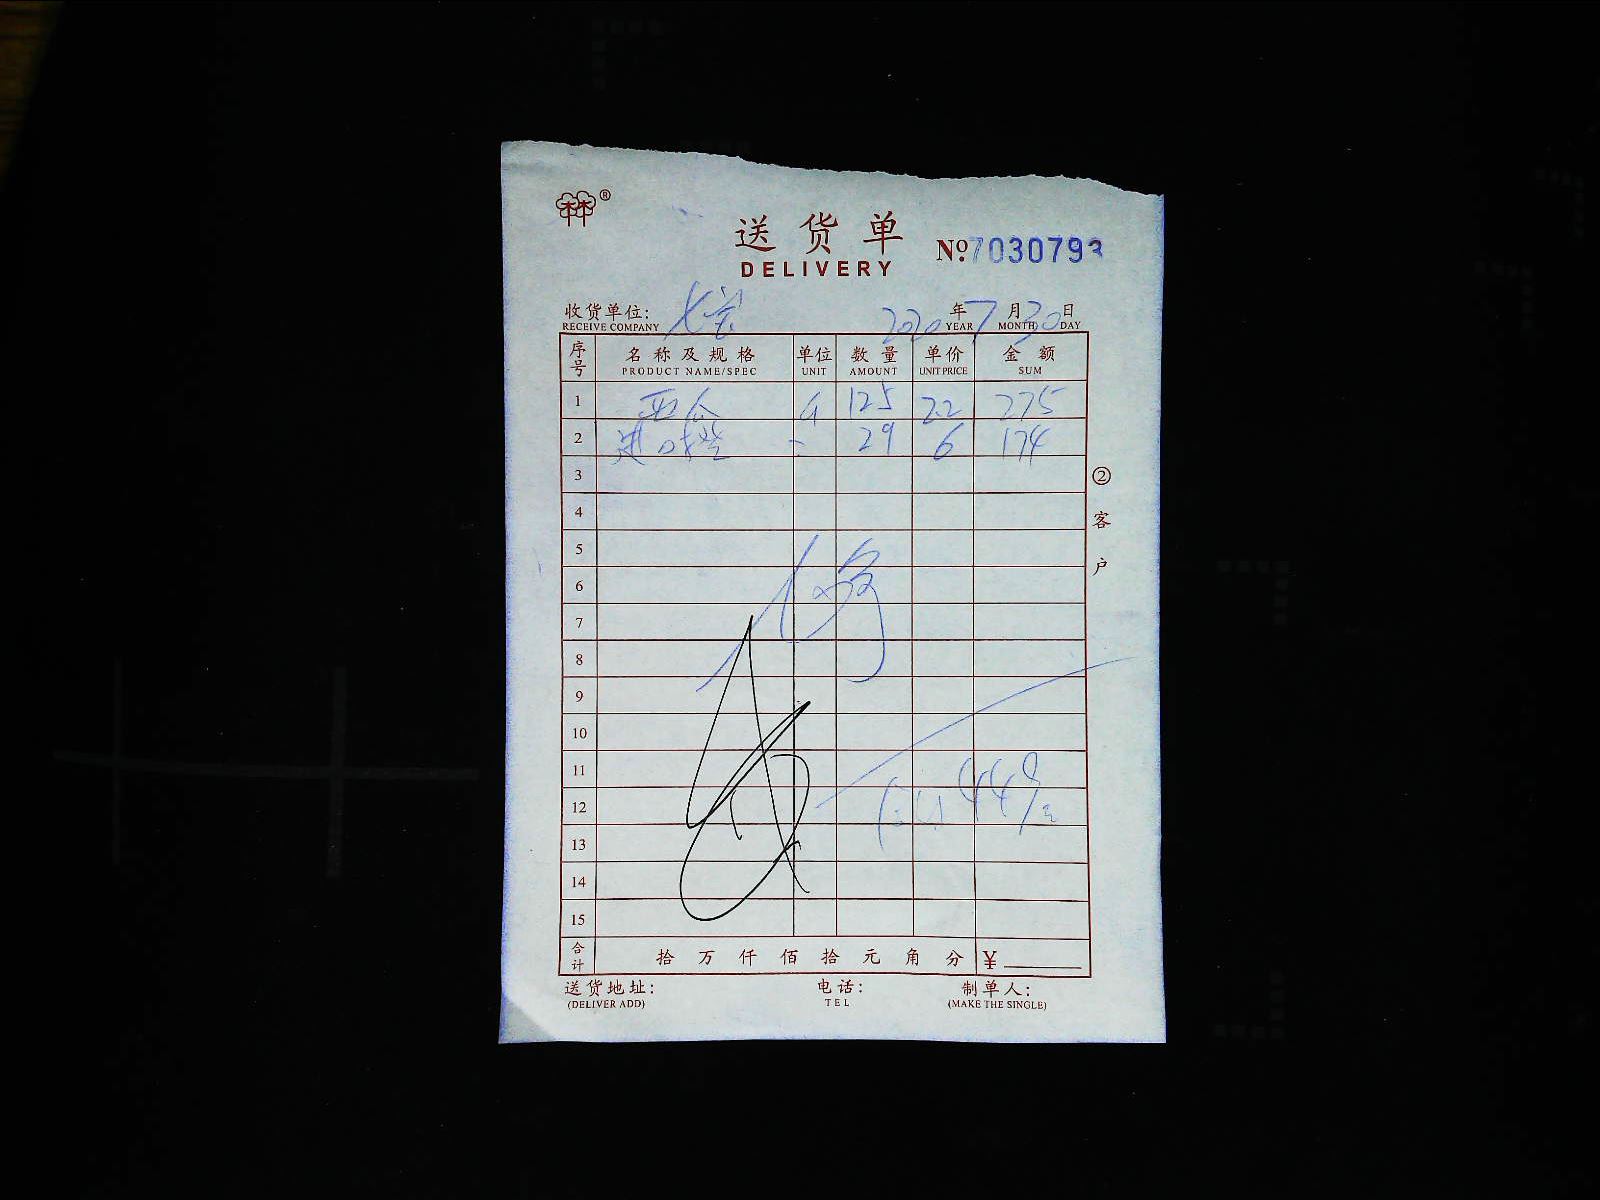 ®
送货单
No.7030793
DELIVERY
收货单位: 七宝 2020年7月30日
RECEIVE COMPANY YEAR MONTH DAY
序号 名称及规格 单位 数量 单价 金额
PRODUCT NAME/SPEC UNIT AMOUNT UNIT PRICE SUM
1 斤 125 2.2 275
2 进口橙 29 6 174
3
4
5
6
7
8
9
10
11
12 449
13
14
15
合计 拾 万 仟 佰 拾 元 角 分 ¥
② 客户
送货地址: 电话: 制单人:
(DELIVER ADD) TEL (MAKE THE SINGLE)